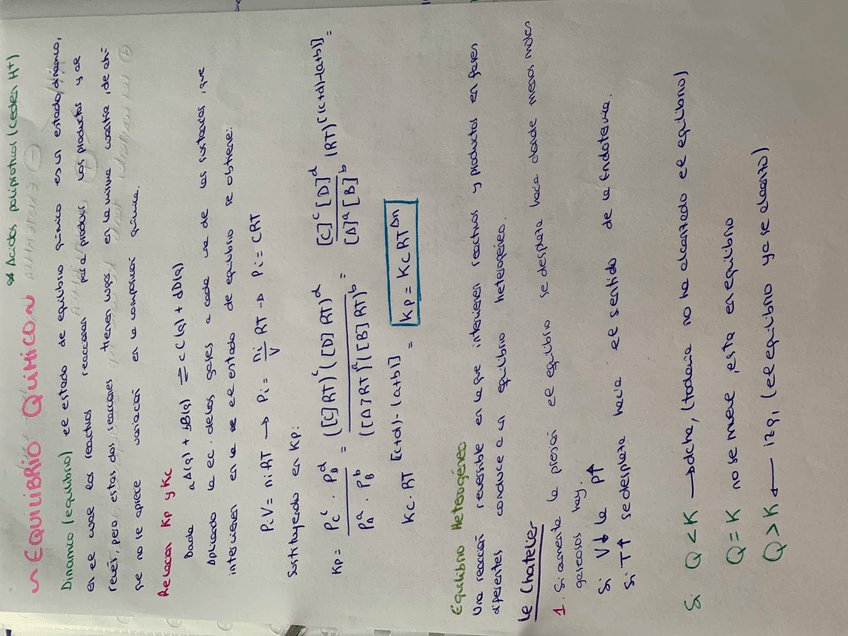 * Ácidos polipróticos (ceden H+)
~ EQUILIBRIO QUÍMICO ~
Dinámico (equilibrio) el estado de equilibrio químico es un estado dinámico,
en el cual los reactivos reaccionan para producir los productos y al
revés, pero estas dos reacciones tienen lugar en la misma cuantía, de ahí
que no se aprecie variación en la composición química.
Relación Kp y Kc
Dada aA(g) + bB(g) ⇌ cC(g) + dD(g)
Aplicando la ec. de los gases a cada una de las sustancias, que
intervienen en la el estado de equilibrio se obtiene:
PiV = niRT → Pi = ni/V RT → Pi = CRT
Sustituyendo en Kp:
Kp = Pc^c · PD^d / PA^a · PB^b = ([C]RT)^c ([D]RT)^d / ([A]RT)^a ([B]RT)^b = [C]^c [D]^d / [A]^a [B]^b (RT)^[(c+d)-(a+b)] =
Kc · RT^[(c+d)-(a+b)] = Kp = Kc RT^Δn
Equilibrio Heterogéneo
Una reacción reversible en la que intervienen reactivos y productos en fases
diferentes conduce a un equilibrio heterogéneo.
Le Chatelier
1. Si aumenta la presión el equilibrio se desplaza hacia donde menos moles
gaseosos hay.
Si V↓ la P↑
Si T↑ se desplaza hacia el sentido de la Endotermia.
Si Q < K → dcha, (todavía no ha alcanzado el equilibrio)
Q = K no se mueve, está en equilibrio
Q > K ← izq, (el equilibrio ya se alcanzó)